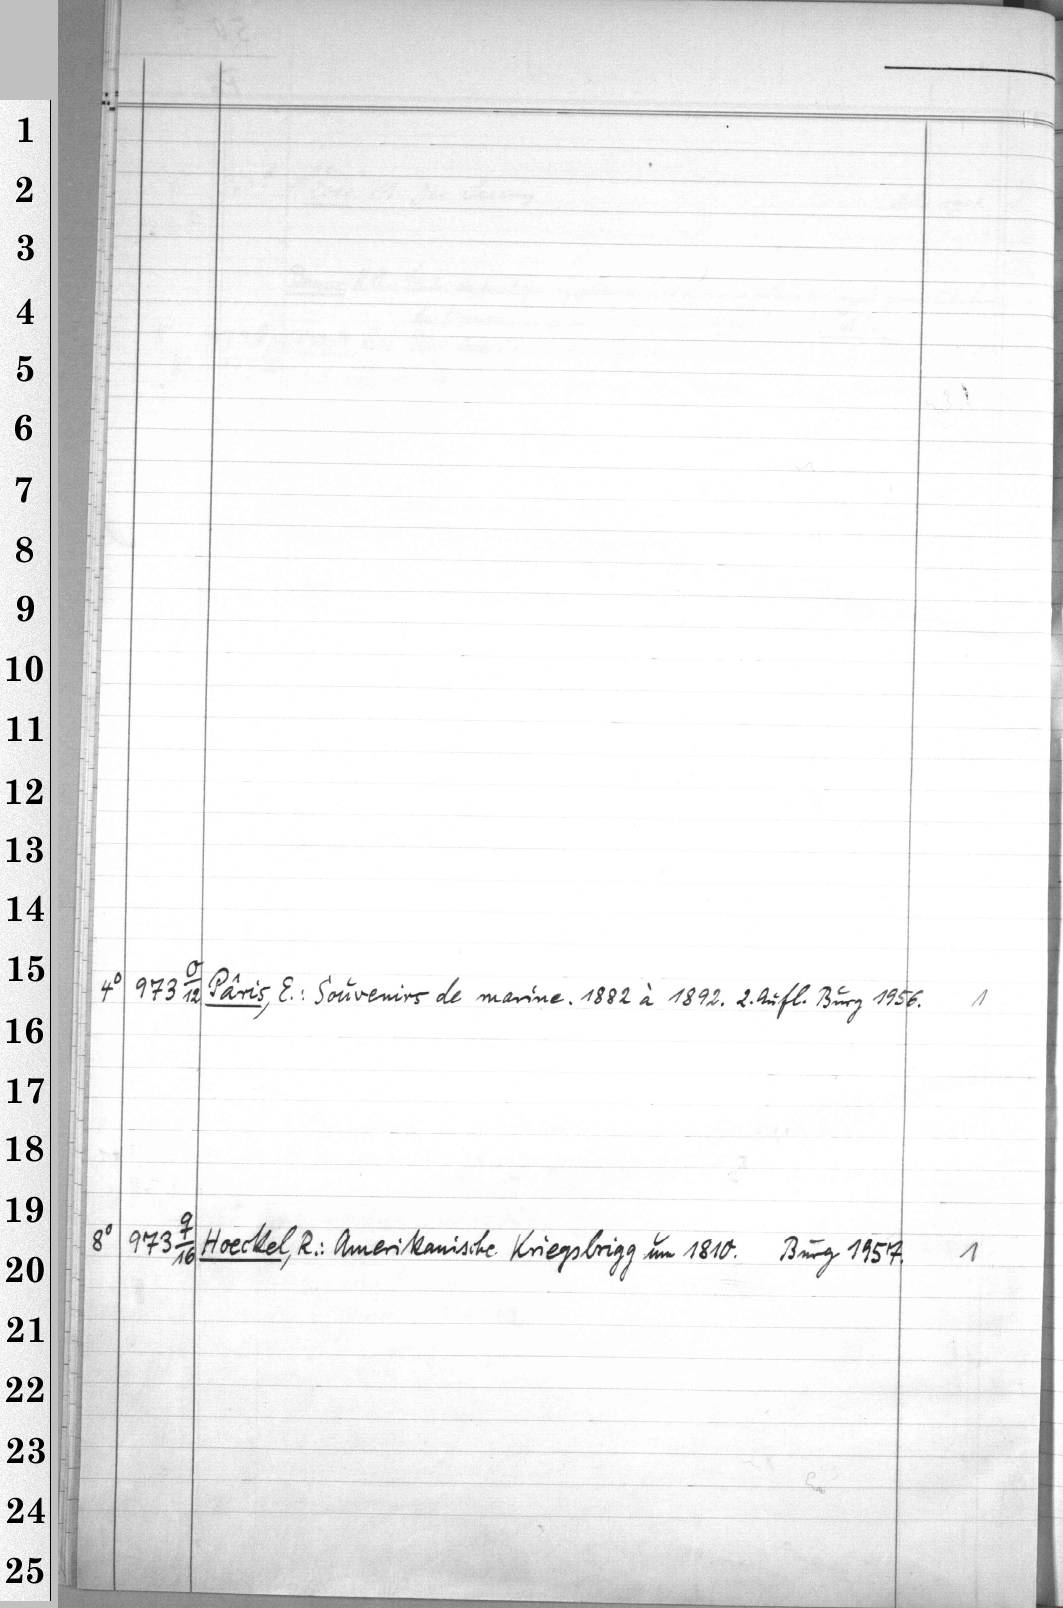 1
2
3
4
5
6
7
8
9
10
11
12
13
14
15
4° 973 σ/12 Pâris, E.: Souvenirs de marine. 1882 à 1892. 2. Aufl. Burg 1956. 1
16
17
18
19
8° 973 9/16 Hoeckel, R.: Amerikanische Kriegsbrigg um 1810. Burg 1957. 1
20
21
22
23
24
25